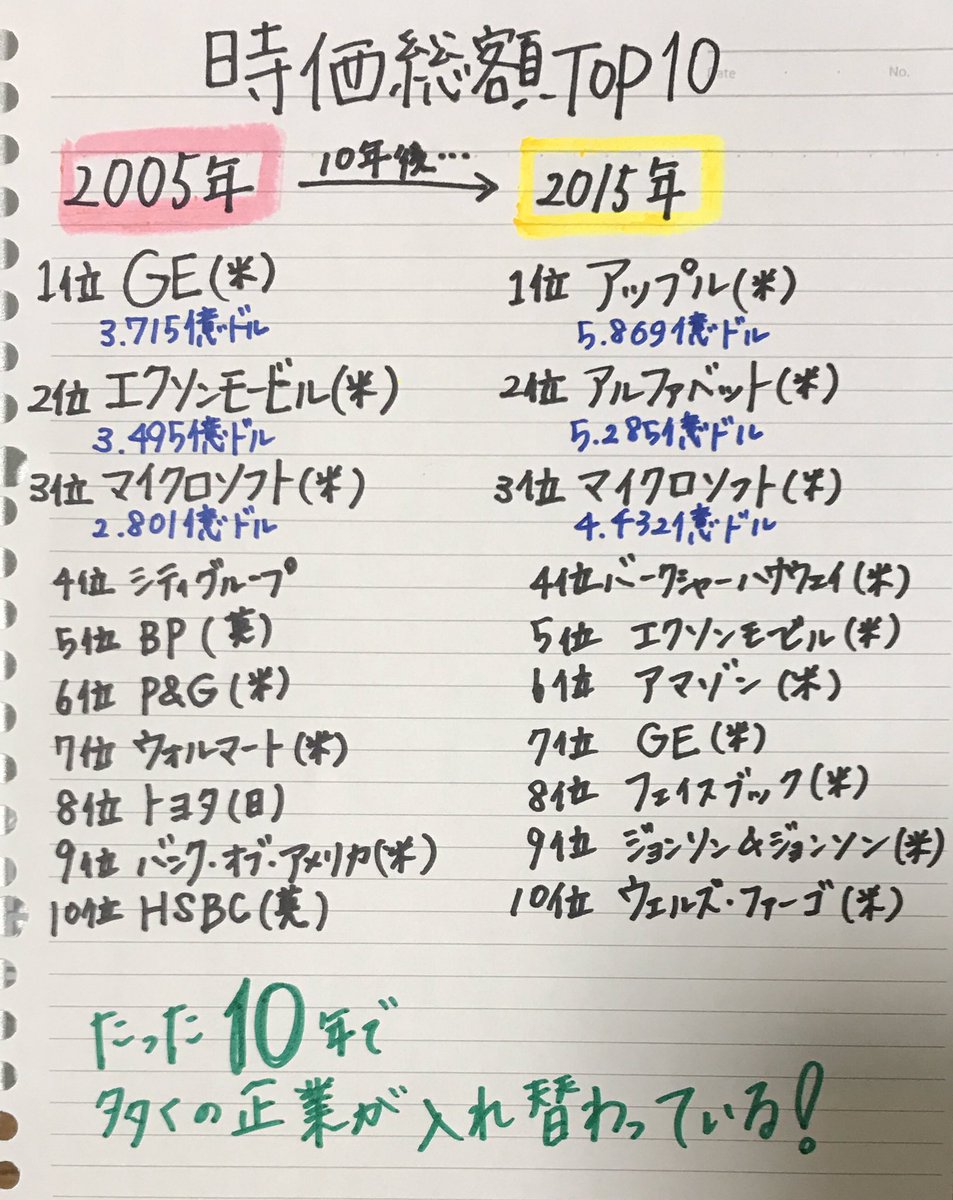 時価総額Top10
Date ・ ・ No.
2005年
10年後…
2015年
1位 GE(米)
3.715億ドル
2位 エクソンモービル(米)
3.495億ドル
3位 マイクロソフト(米)
2.801億ドル
4位 シティグループ
5位 BP(英)
6位 P&G(米)
7位 ウォルマート(米)
8位 トヨタ(日)
9位 バンク・オブ・アメリカ(米)
10位 HSBC(英)
1位 アップル(米)
5.869億ドル
2位 アルファベット(米)
5.285億ドル
3位 マイクロソフト(米)
4.432億ドル
4位 バークシャーハサウェイ(米)
5位 エクソンモービル(米)
6位 アマゾン(米)
7位 GE(米)
8位 フェイスブック(米)
9位 ジョンソン&ジョンソン(米)
10位 ウェルズ・ファーゴ(米)
たった10年で
多くの企業が入れ替わっている!